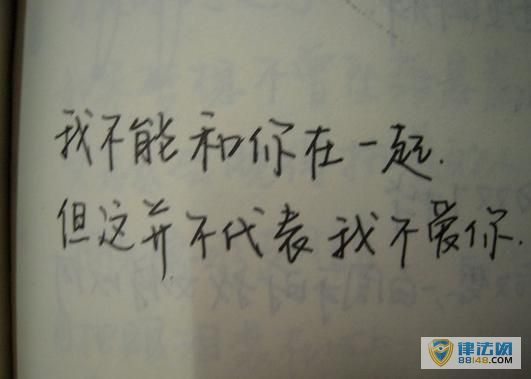 我不能和你在一起.
但这并不代表我不爱你.
律法网
88148.com